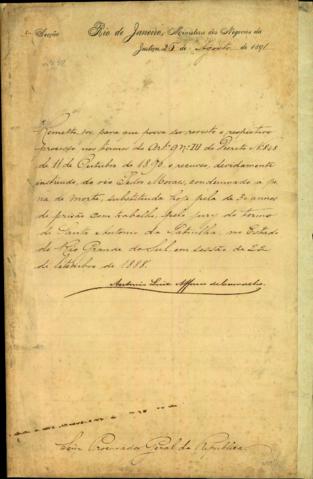 Secção Rio de Janeiro, Ministerio dos Negocios da
Justiça, 25 de Agosto de 1891.
Remetto-vos para que possa ser revisto o respectivo
processo nos termos do Art. 9 nº III do Decreto nº 848
de 11 de Outubro de 1890 o recurso, devidamente
instruido, do réo Pedro Moraes, condemnado a pe
na de morte, substituida hoje pela de 30 annos
de prisão com trabalho, pelo jury do termo
de Santo Antonio da Patrulha, no Estado
do Rio Grande do Sul em sessão de 22
de Setembro de 1888.
Antonio Luiz Affonso de Carvalho
Senr Procurador Geral da Republica